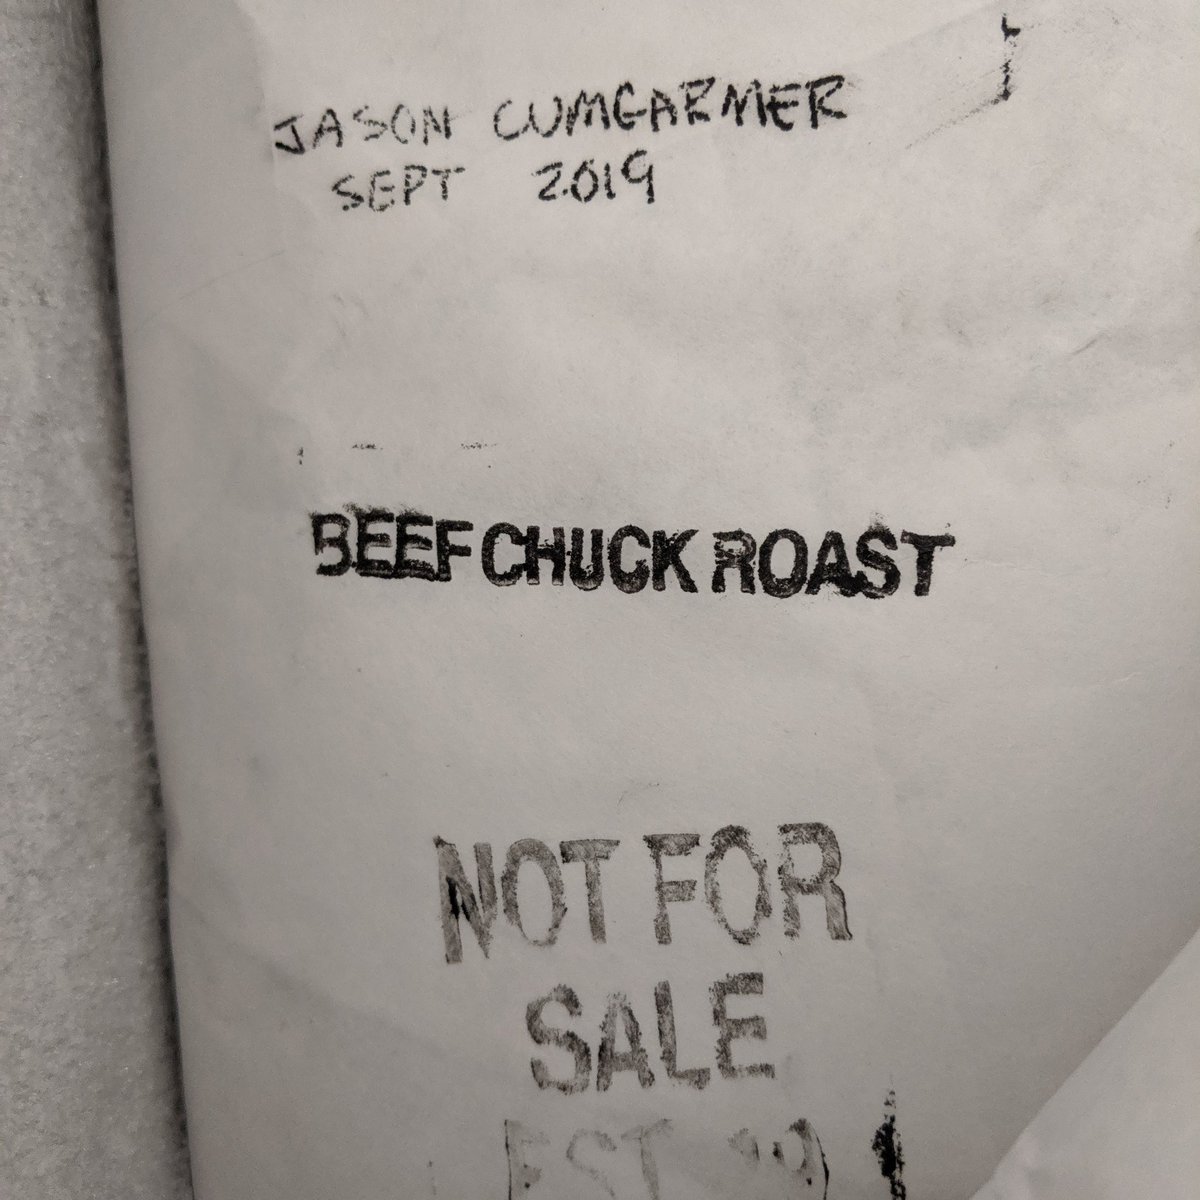 JASON CUMGARMER
SEPT 2019
BEEF CHUCK ROAST
NOT FOR
SALE
EST